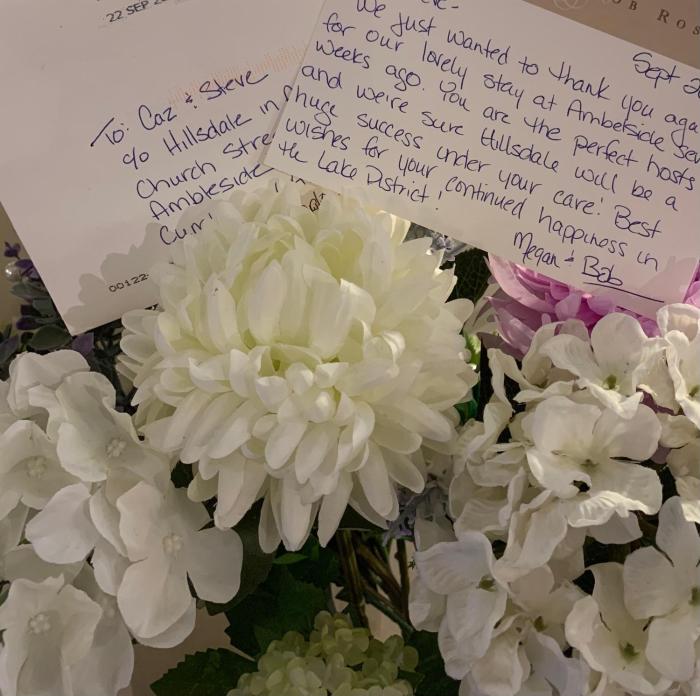 22 SEP
To: Caz & Steve
c/o Hillsdale in
Church Stre
Ambleside
Cum
00122
OB ROS
Sept 2
We just wanted to thank you aga
for our lovely stay at Ambelside se
weeks ago. You are the perfect hosts
and we're sure Hillsdale will be a
huge success under your care! Best
wishes for your continued happiness in
the Lake District!
Megan & Bob